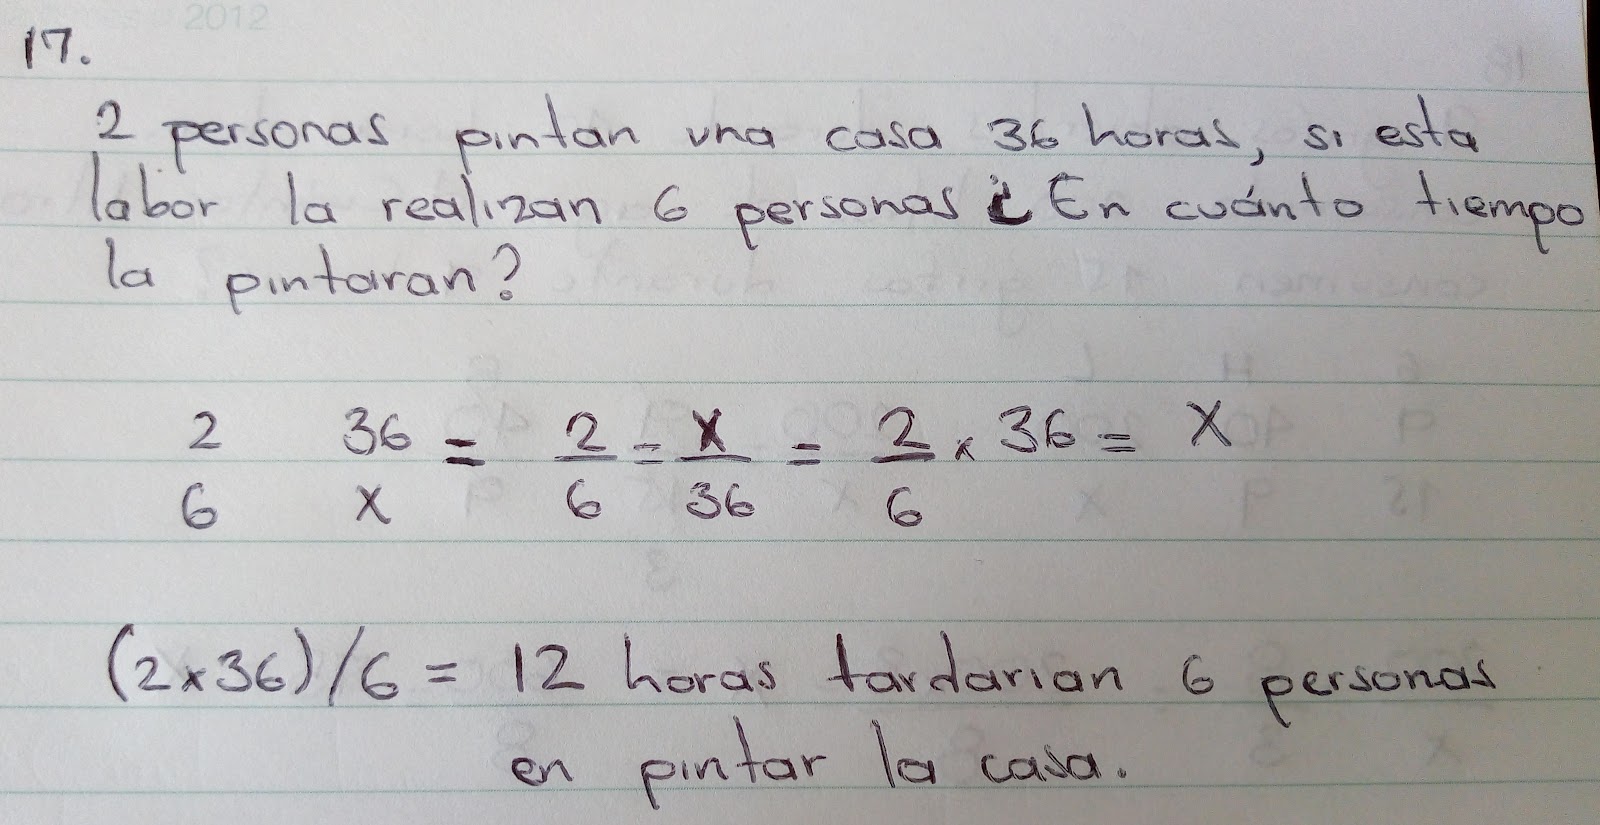 2012
17.
2 personas pintan una casa 36 horas, si esta
labor la realizan 6 personas ¿ En cuánto tiempo
la pintaran?
2 36 = 2 = x = 2 x 36 = x
6 x 6 36 6
(2x36)/6 = 12 horas tardarian 6 personas
en pintar la casa.